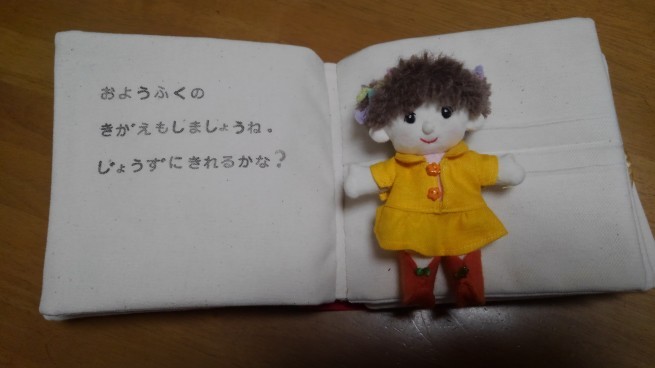 おようふくの
きがえもしましょうね。
じょうずにきれるかな?